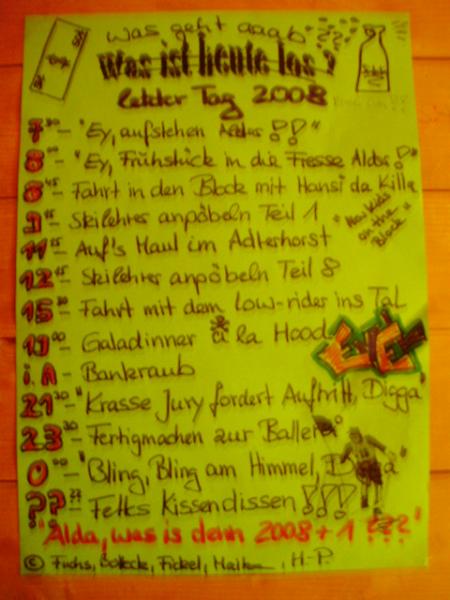 Was geht aaab
Was ist heute los?
letzter Tag 2008
7³⁰ - "Ey, aufstehen Alder!!"
8⁰⁰ - "Ey, Frühstück in die Fresse Alder!"
8⁴⁵ - Fahrt in den Block mit Hansi da Killa
"Nai kids on the Block"
9¹⁵ - Skilehrer anpöbeln Teil 1
11⁴⁵ - Auf's Maul im Adlerhorst
12⁴⁵ - Skilehrer anpöbeln Teil 8
15³⁰ - Fahrt mit dem Low-rider ins Tal
19⁰⁰ - Galadinner à la Hood
i.A - Bankraub
21³⁰ - "Krasse Jury fordert Auftritt, Digga"
23³⁰ - Fertigmachen zur Ballerei
0⁰⁰ - "Bling, Bling am Himmel, Digga"
??²² - Fettes Kissendissen!!!
"Alda, was is denn 2008+1???"
© Fuchs, Fickel, H-P.